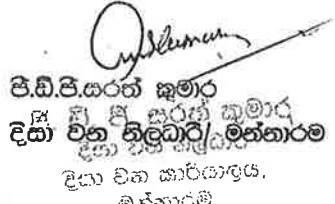 පී.ඩී.පී.සරත් කුමාර
පී ඩී පී සරත් කුමාර
දිසා වන නිලධාරී/ මන්නාරම
දිසා වන නිලධාරී
දිසා වන කාර්යාලය,
මන්නාරම